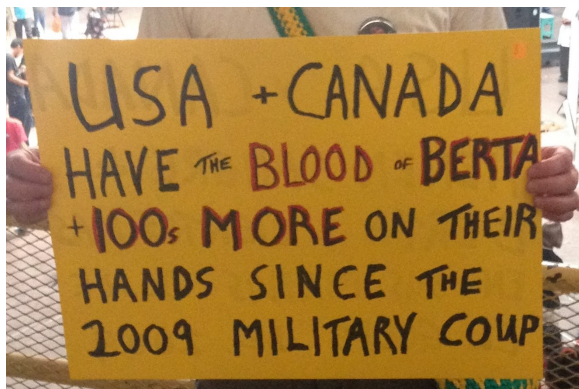 USA + CANADA
HAVE THE BLOOD OF BERTA
+ 100s MORE ON THEIR
HANDS SINCE THE
2009 MILITARY COUP